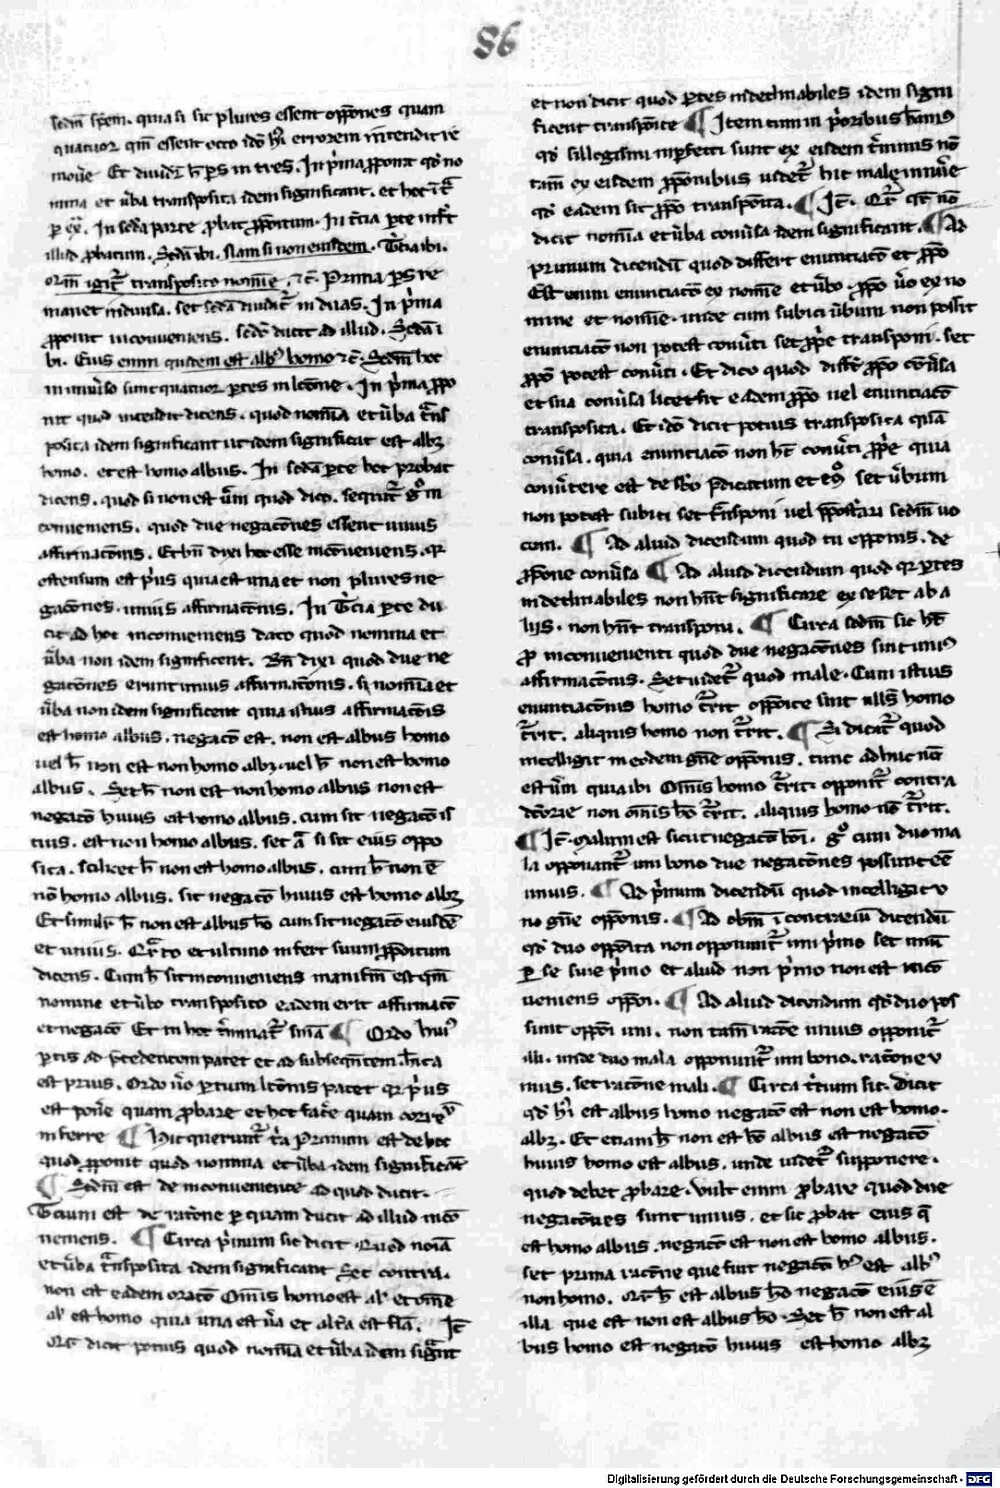 86
scdm spem. quia si sic plures essent oppones quam
quatuor qm essent octo ido hi errorem intendit re
moue Et diuidr h ps in tres. In pma pponit qd no
mina et uba transposita idem significant. et hoc
p ex. In scda parte pbat ppositum. In tcia pte inft
illud pbatum. Scda ibi. Nam si non eiusdem. Tcia ibi.
transposito nomine, Prima ps re
manet indiuisa. set scda diuidit in duas. In pma
pponit inconueniens. scdo ducit ad illud. Scda i
bi. Eius enim quidem est albus homo Scdm hoc
in uniuso sunt quatuor ptes in lcone. In pma ppo
nit quod intendit dicens. quod nomia et uba tns
posita idem significant ut idem significat est albus
homo. et est homo albus. In scda pte hoc probat
dicens. quod si non est uum quod dico. sequitr go in
conueniens. quod due negacones essent unius
affirmaconis. Et bn dixi hoc esse inconueniens. qr
ostensum est pus quia est una et non plures ne
gacones. unius affirmaconis. In tcia pte du
cit ad hoc inconueniens dato quod nomina et
uba non idem significent. Bn dixi quod due ne
gacones erunt unius affirmaconis. si nomia et
uba non idem significent quia istius affirmaconis
est homo albus. negaco est. non est albus homo
uel h non est non homo albus. uel h non est homo
albus. Set h non est non homo albus non est
negaco huius est homo albus. cum sit negaco is
tius. est non homo albus. set si sit eius oppo
sita. scilicet h non est homo albus. cum h non e
no homo albus. sit negaco huius est homo albus
Et similr h non est albus ho cum sit negaco eiusde
et unius. et ultimo infert suum ppositum
dicens. Cum h sit inconueniens manifestum est qm
nomine et ubo transposito eadem erit affirmaco
et negaco Et in hoc tminatr snia ¶ Ordo huius
ptis ad pcedentem patet et ad subsequentem.
est prius. Ordo uo ptium lconis patet qr pus
est pone quam pbare et hoc facere quam
inferre ¶ Hic queruntr tia Primum est de hoc
quod pponit quod nomina et uba idem significant
¶ Scdm est de inconueniente ad quod ducit.
Tcium est de ratone p quam ducit ad illud inco
neniens. ¶ Circa pmum sic dicit. Quod noia
et uba tnsposita idem significant Set contra.
non est eadem oraco Omnis homo est al et ome
al est homo quia una est ua et altra est fla. It
dicit potius quod nomia et uba idem signit
et non dicit quod ptes indeclinabiles idem signi
ficent transposite ¶ Item cum in poribus
qd sillogismi inpfecti sunt ex eisdem tminis no
tam ex eisdem pponibus uidetr hic male innue
qd eadem sit ppo transposita. ¶ It. Qr no
dicit nomia et uba conusa idem significant. ¶ Ad
primum dicendum quod differt enunciaco et ppo
Est enim enunciaco ex nomine et ubo. ppo uo ex no
mine et nomine. unde cum subici ubum non possit
enunciaco non potest conuti set ppe transponi. set
ppo potest conuti. Et dico quod differt ppo conusa
et sua conusa licet sit eadem ppo uel enunciaco
transposita. Et ido dicit potius transposita quam
conusa. quia enunciaco non ht conuti ppe quia
conutere est de sbo pdicatum et eo set ubum
non potest subici set tnsponi uel ppostari scdm uo
cem. ¶ Ad aliud dicendum quod tu opponis. de
ppone conusa ¶ Ad aliud dicendum quod qr ptes
indeclinabiles non hnt significare ex se set ab a
liis. non hnt transponi. ¶ Circa scdm sic ht
p inconuenienti quod due negacones sint unius
affirmaconis. Set uidetr quod male. Cum istius
enunciaconis homo crrit opposite sint nullus homo
crrit. aliquis homo non crrit. ¶ Si dicatr quod
intelligit in eodem gne opponis. tunc adhuc non
est uum quia ibi Omnis homo crrit. opponitr contra
dcorie non omnis ho crrit. aliquis homo no crrit.
¶ It. Malum est sicut negaco boni. go cum duo ma
la opponantr uni bono due negacones possunt ee
unius. ¶ Ad pmum dicendum quod intelligit u
no gne opponis. ¶ Ad obm i contrarium dicendum
qd duo opposita non opponuntr uni pmo set unum
p se siue pmo et aliud non pmo non est inco
ueniens opponi. ¶ Ad aliud dicendum qd duo pos
sunt opponi uni. non tam racone unius opponitr
illi. unde duo mala opponuntr uni bono. racone u
nius. set racone mali. ¶ Circa tcium sic. Dicit
qd hi est albus homo negaco est non est homo.
albus. Et etiam h non est ho albus est negaco
huius homo est albus. unde uidetr supponere.
quod debet pbare. Vult enim pbare quod due
negacones sunt unius. et sic pbat eius q
est homo albus. negaco est non est homo albus.
set prima racone que fuit negaco hs est albus
non homo. h est albus ho negaco eiusde
illa que est non est albus ho. Set h non est al
bus homo est negaco huius est homo albus
Digitalisierung gefördert durch die Deutsche Forschungsgemeinschaft - DFG